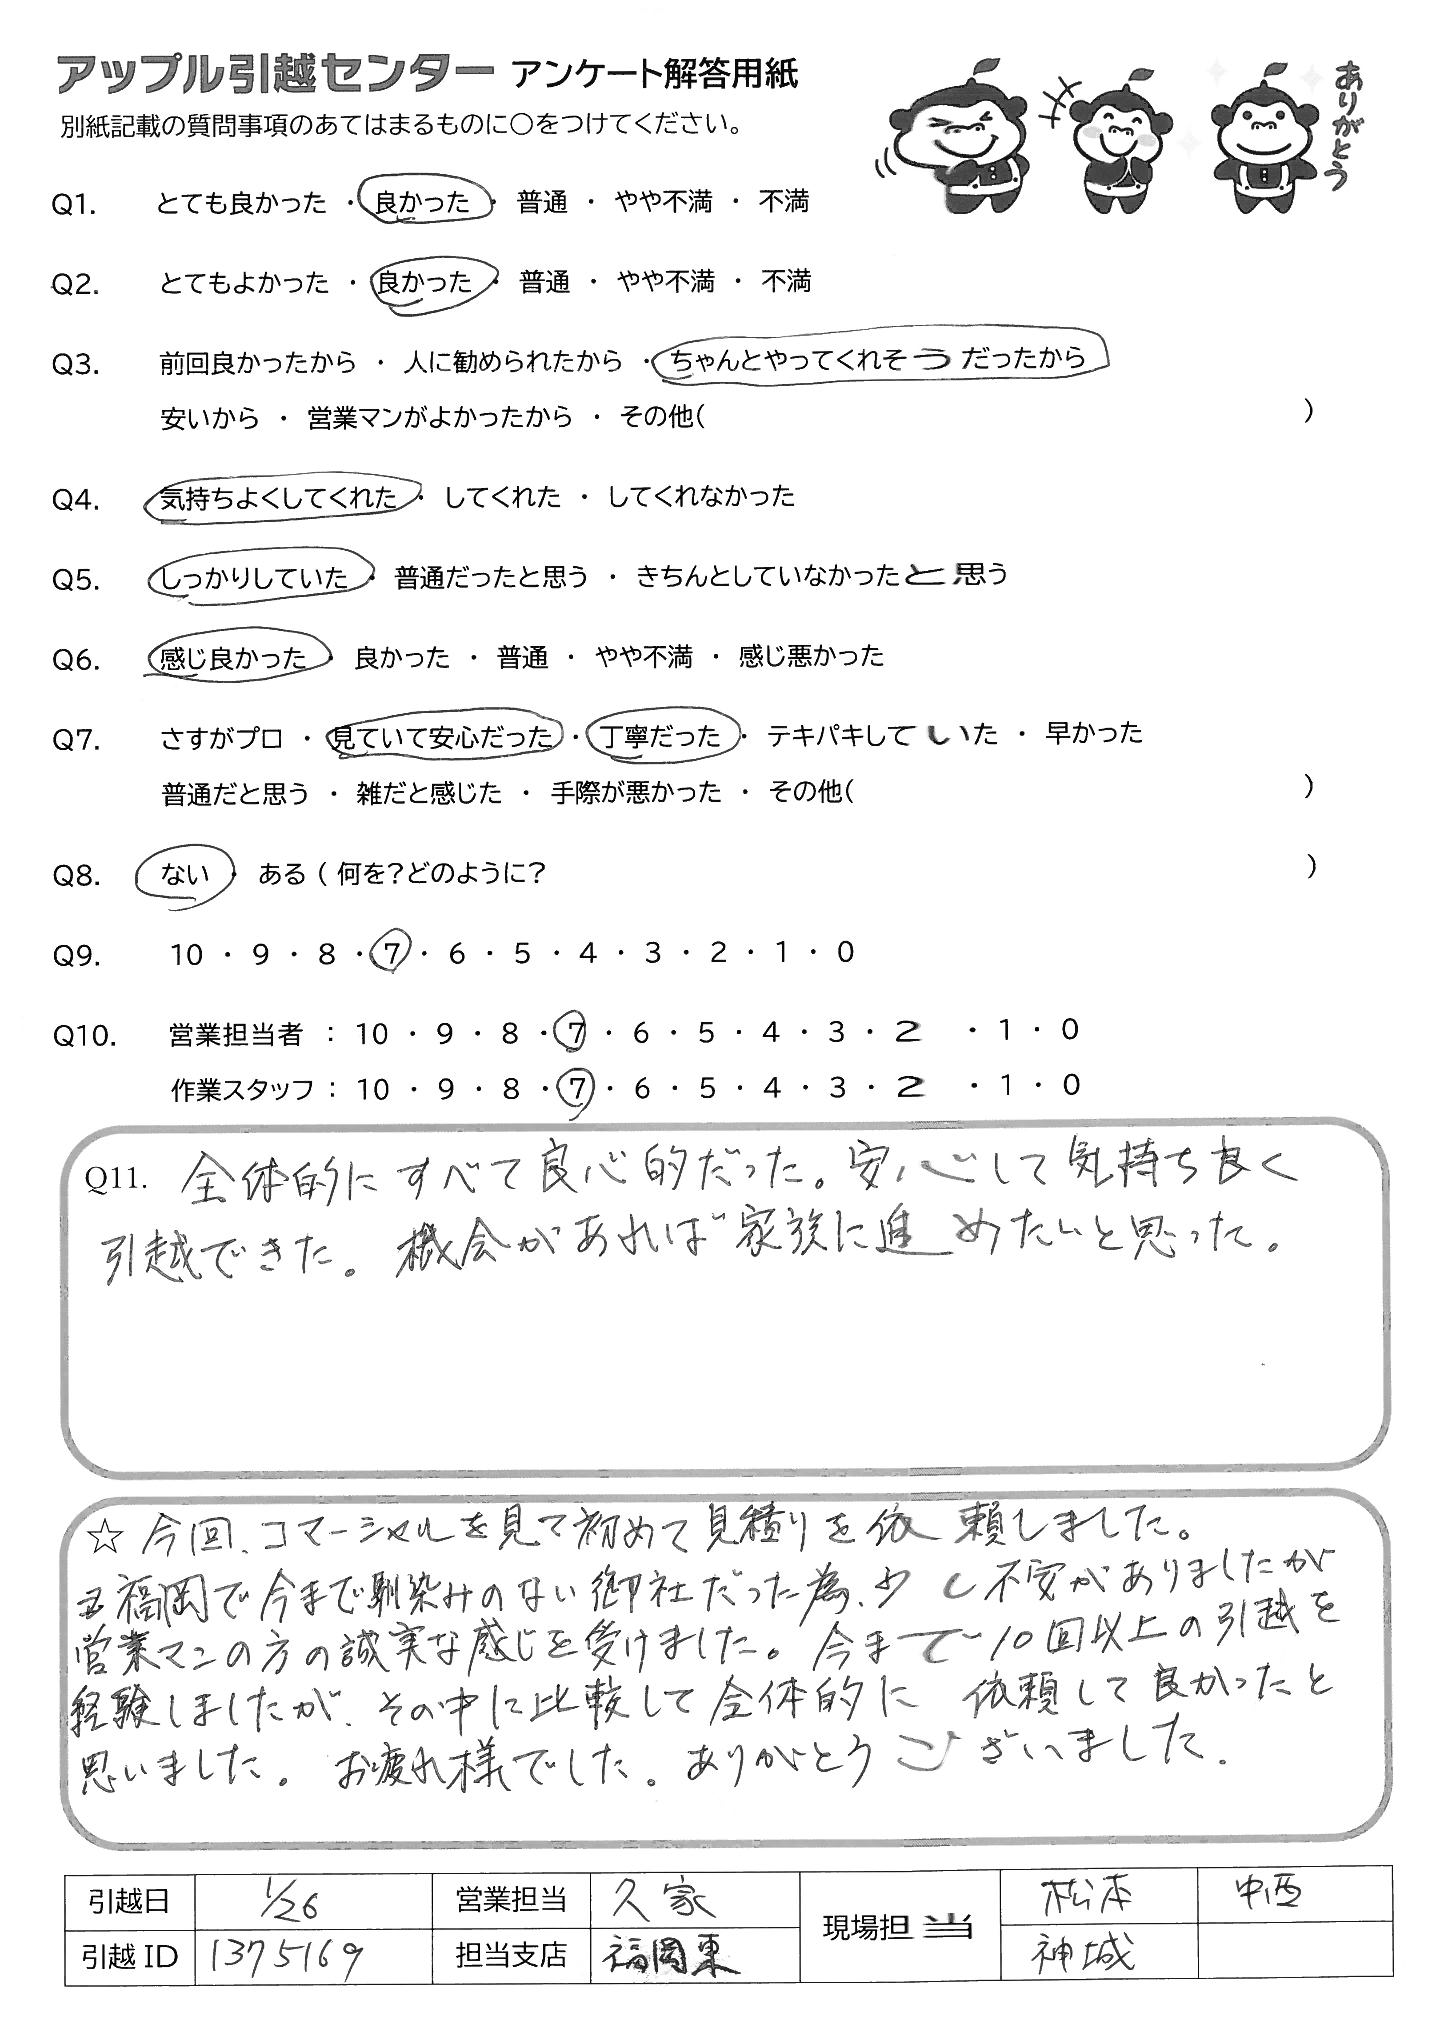 アップル引越センター アンケート解答用紙
ありがとう
別紙記載の質問事項のあてはまるものに○をつけてください。
Q1. とても良かった ・ 良かった ・ 普通 ・ やや不満 ・ 不満
Q2. とてもよかった ・ 良かった ・ 普通 ・ やや不満 ・ 不満
Q3. 前回良かったから ・ 人に勧められたから ・ ちゃんとやってくれそうだったから
安いから ・ 営業マンがよかったから ・ その他( )
Q4. 気持ちよくしてくれた ・ してくれた ・ してくれなかった
Q5. しっかりしていた ・ 普通だったと思う ・ きちんとしていなかったと思う
Q6. 感じ良かった ・ 良かった ・ 普通 ・ やや不満 ・ 感じ悪かった
Q7. さすがプロ ・ 見ていて安心だった ・ 丁寧だった ・ テキパキしていた ・ 早かった
普通だと思う ・ 雑だと感じた ・ 手際が悪かった ・ その他( )
Q8. ない ・ ある ( 何を?どのように? )
Q9. 10 ・ 9 ・ 8 ・ 7 ・ 6 ・ 5 ・ 4 ・ 3 ・ 2 ・ 1 ・ 0
Q10. 営業担当者 : 10 ・ 9 ・ 8 ・ 7 ・ 6 ・ 5 ・ 4 ・ 3 ・ 2 ・ 1 ・ 0
作業スタッフ : 10 ・ 9 ・ 8 ・ 7 ・ 6 ・ 5 ・ 4 ・ 3 ・ 2 ・ 1 ・ 0
Q11. 全体的にすべて良心的だった。安心して気持ち良く
引越できた。機会があれば家族に進めたいと思った。
☆今回、コマーシャルを見て初めて見積りを依頼しました。
福岡で今まで馴染みのない御社だった為、少し不安がありましたが
営業マンの方の誠実な感じを受けました。今まで10回以上の引越を
経験しましたが、その中に比較して全体的に依頼して良かったと
思いました。お疲れ様でした。ありがとうございました.
引越日 1/26 営業担当 久家 現場担当 松本 中西
引越ID 1375169 担当支店 福岡東 神城